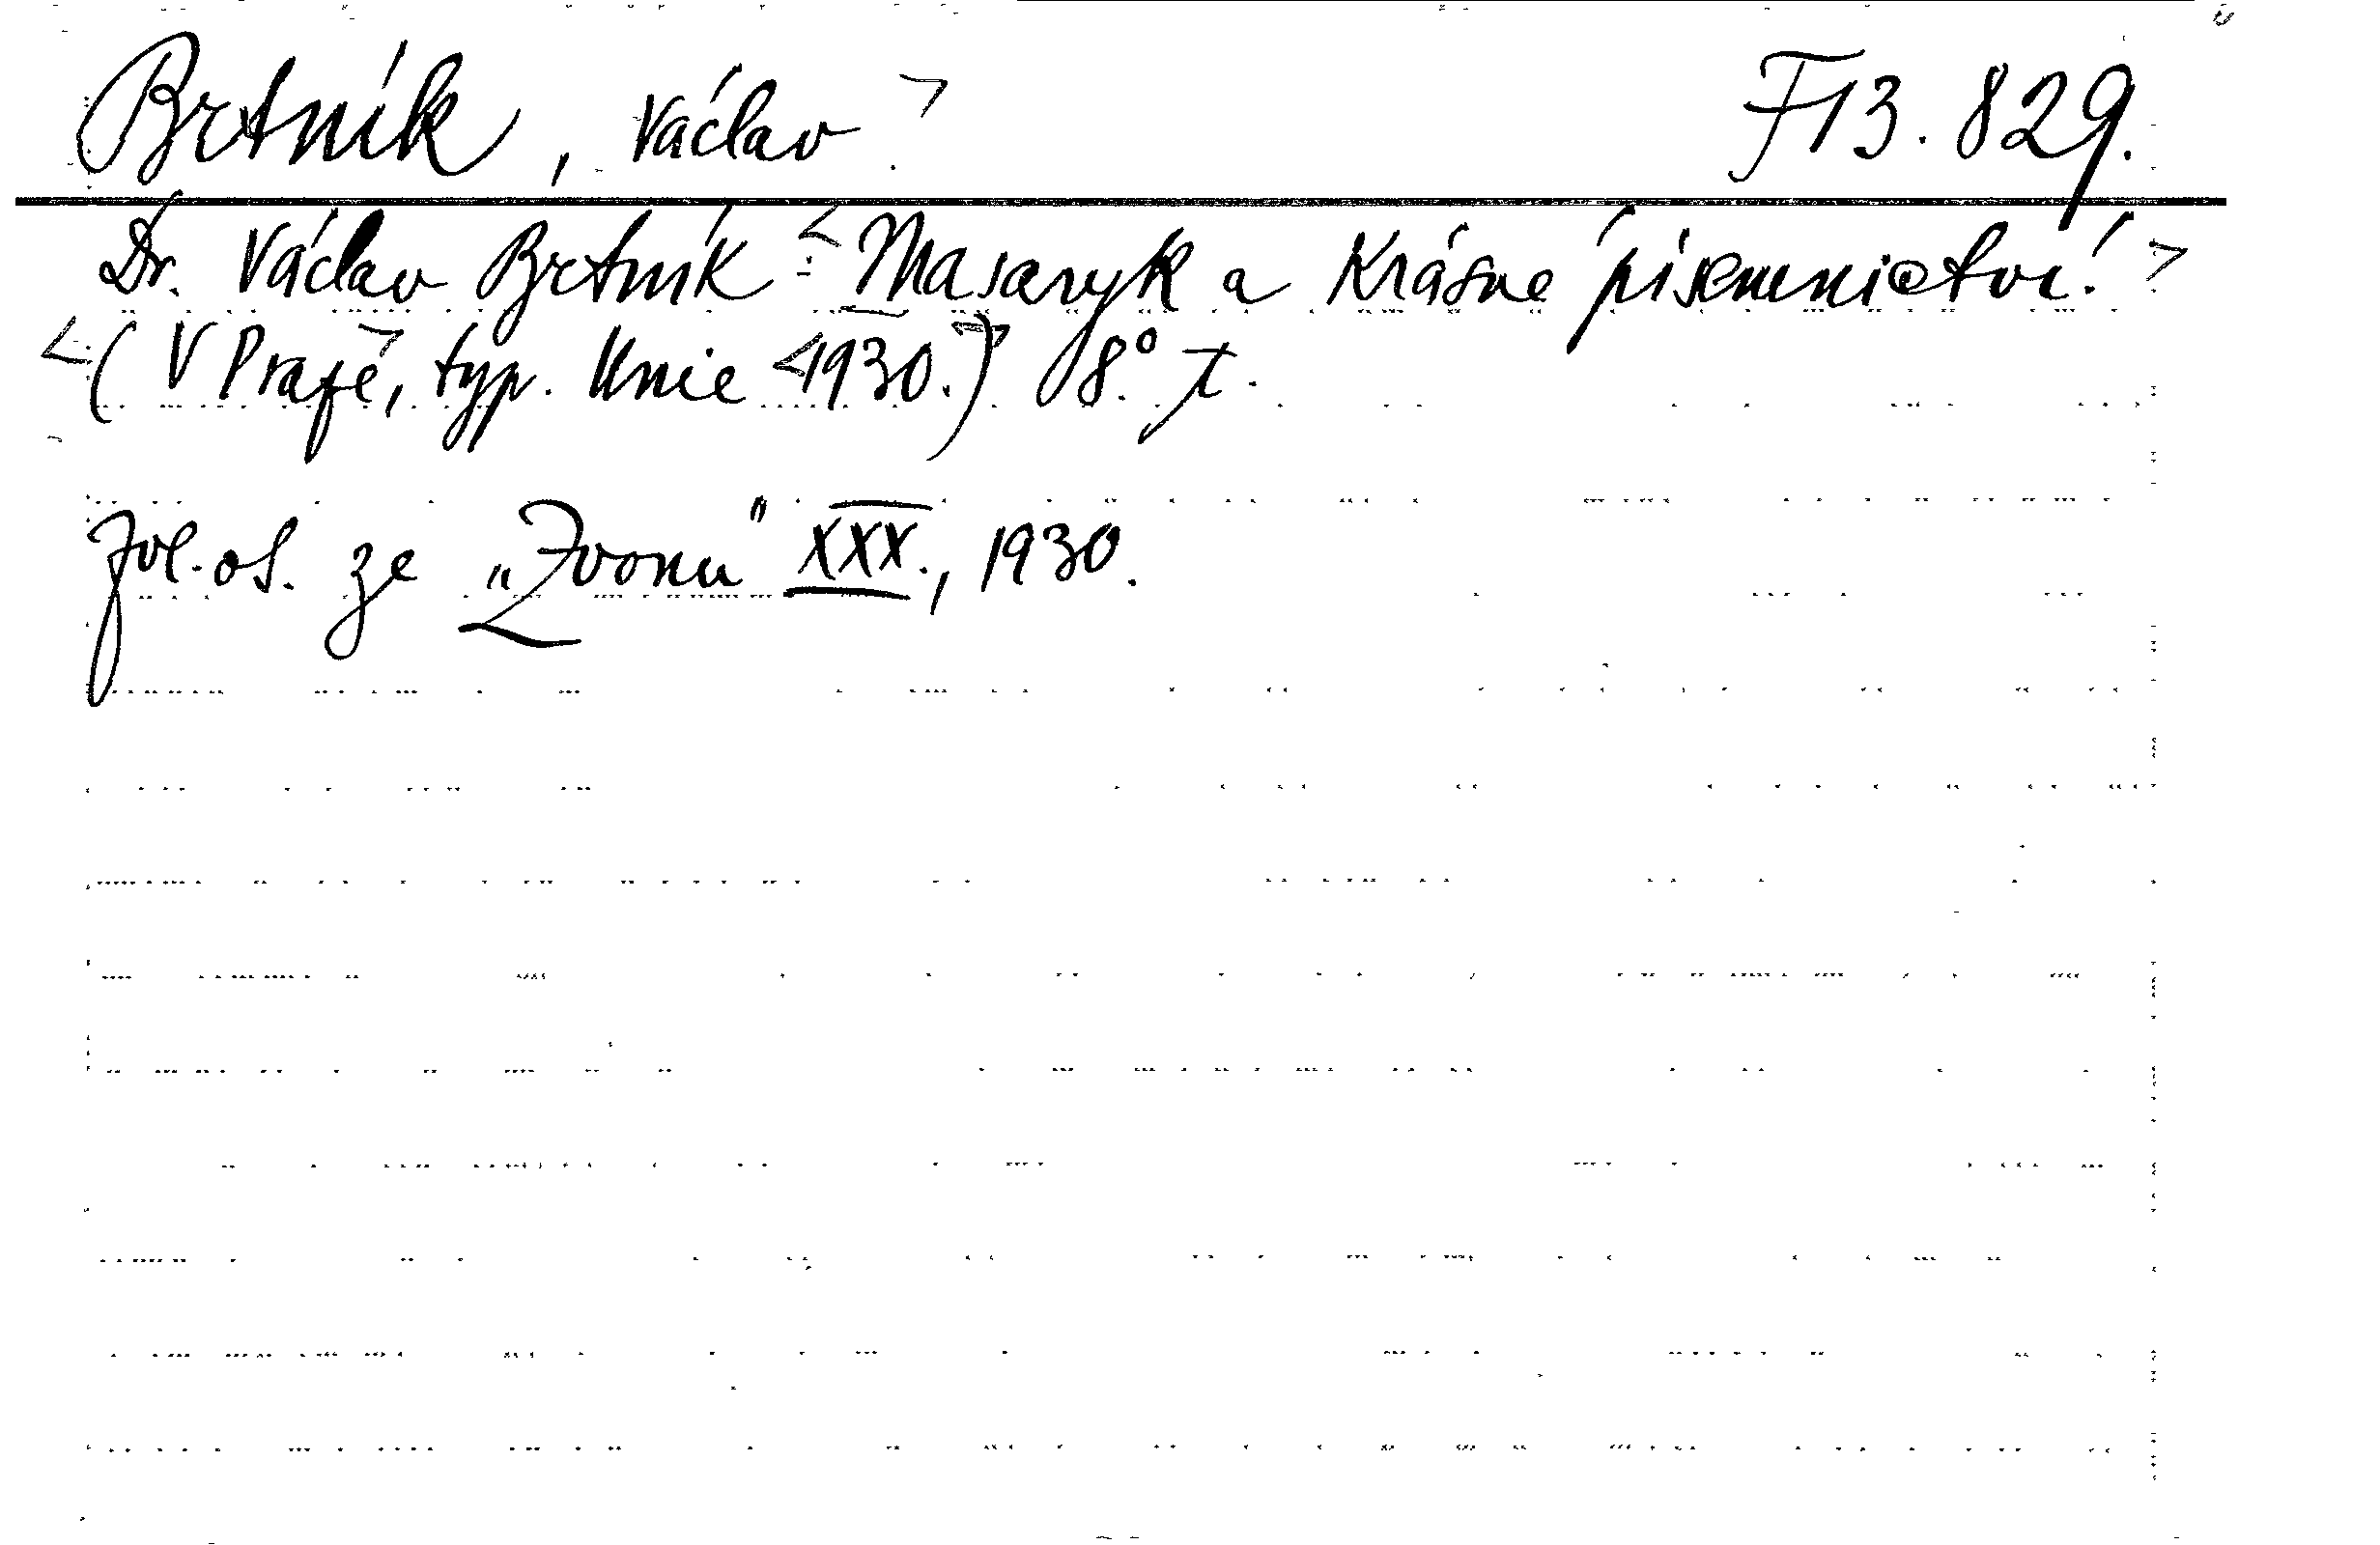 Brtník, Václav > F 13.829.
Dr. Václav Brtník: < Masaryk a krásné písemnictví. >
< ( V Praze, > typ. Unie < 1930.) > 8.° t.
Zvl. ot. ze „Zvonu" XXX., 1930.